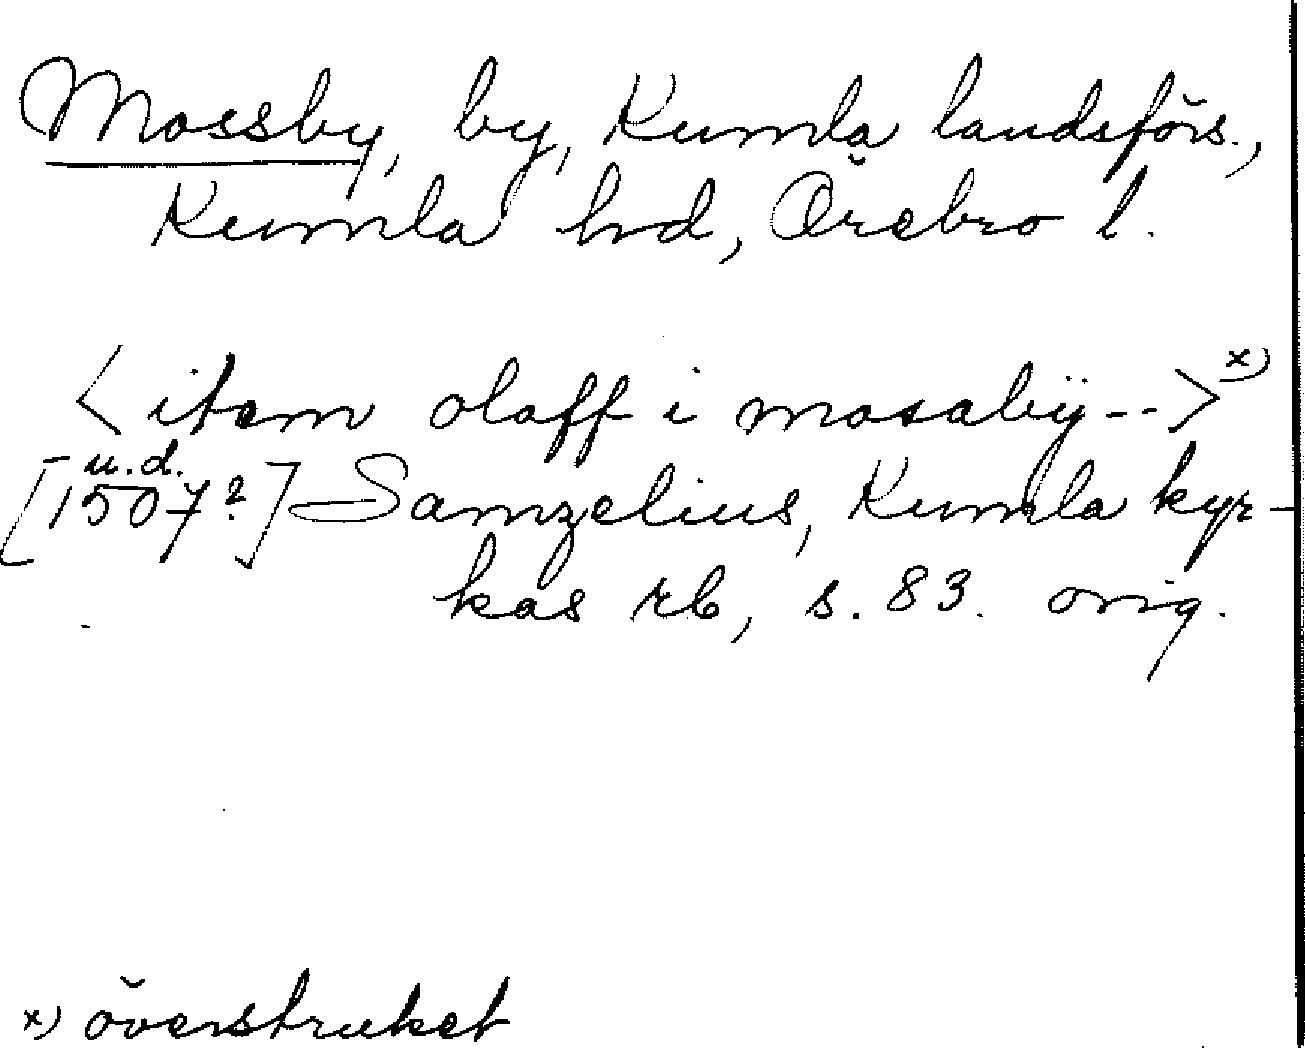 Mossby, by, Kumla landsförs.,
Kumla hd, Örebro l.
<item olaff i mosabÿ--> x)
u.d.
[1507?] Samzelius, Kumla kyr-
kas rb, s. 83. orig.
x) överstruket